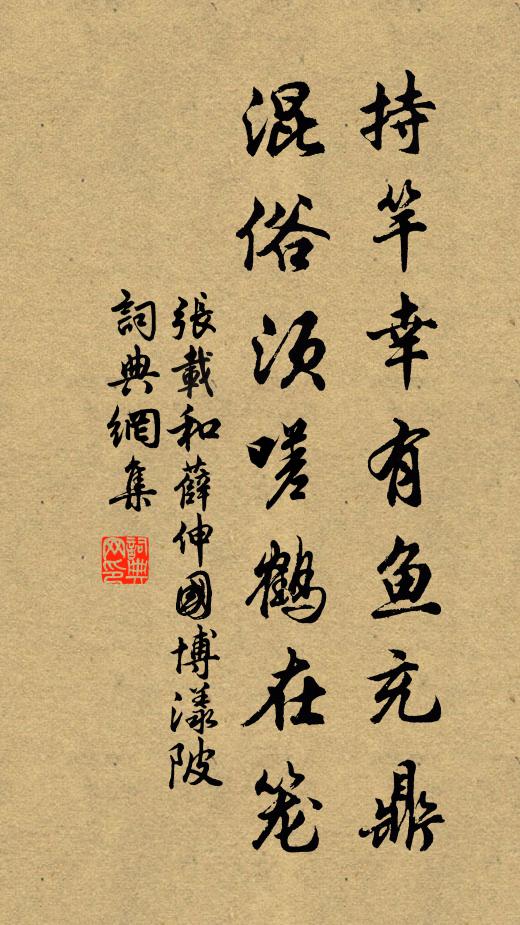 持竿幸有鱼充鼎
混俗须嗟鹤在笼
張載和薛伸國博漾陂
詞典網集
詞典网印